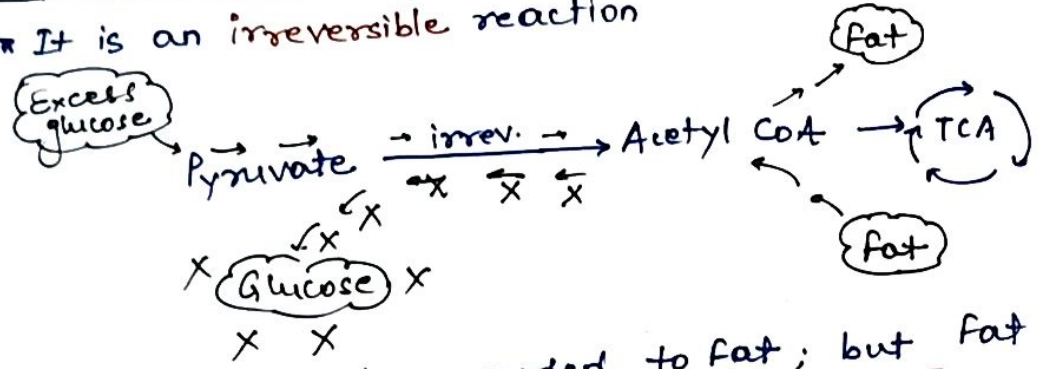 * It is an irreversible reaction
Fat
Excess
glucose
Pyruvate → irrev. → Acetyl CoA → TCA
x x x
x
x
Fat
x Glucose x
x x
to fat; but Fat